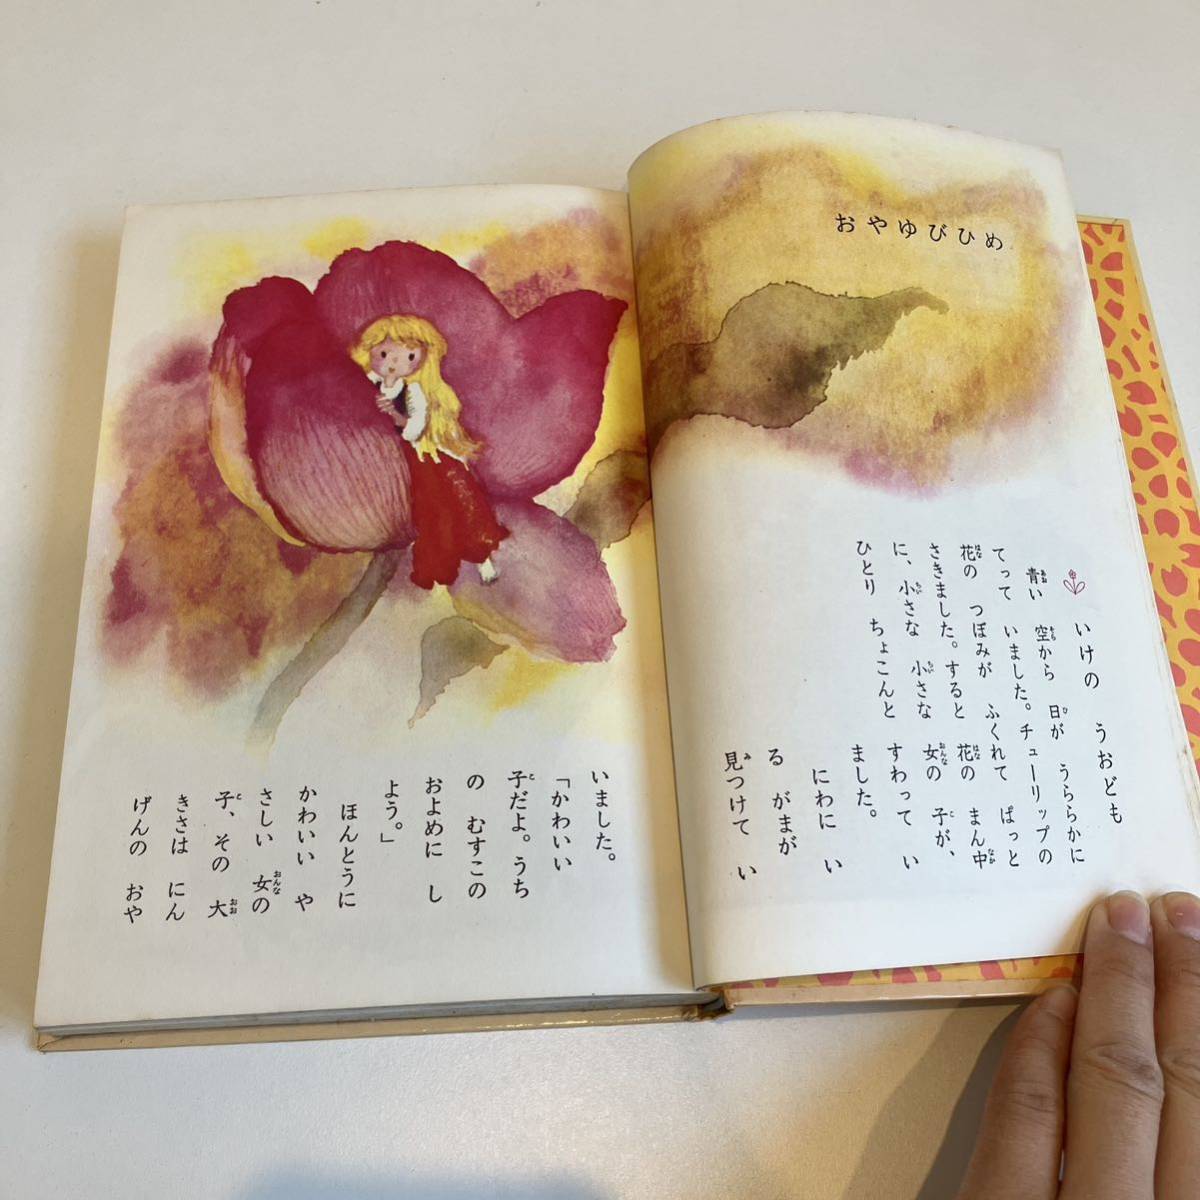 おやゆびひめ
いけの うおども
青い 空から 日が うららかに
てって いました。チューリップの
花の つぼみが ふくれて ぱっと
さきました。すると 花の まん中
に、小さな 小さな 女の 子が、
ひとり ちょこんと すわって い
ました。
にわに い
る がまが
見つけて い
いました。
「かわいい
子だよ。うち
の むすこの
およめに し
よう。」
ほんとうに
かわいい や
さしい 女の
子、その 大
きさは にん
げんの おや